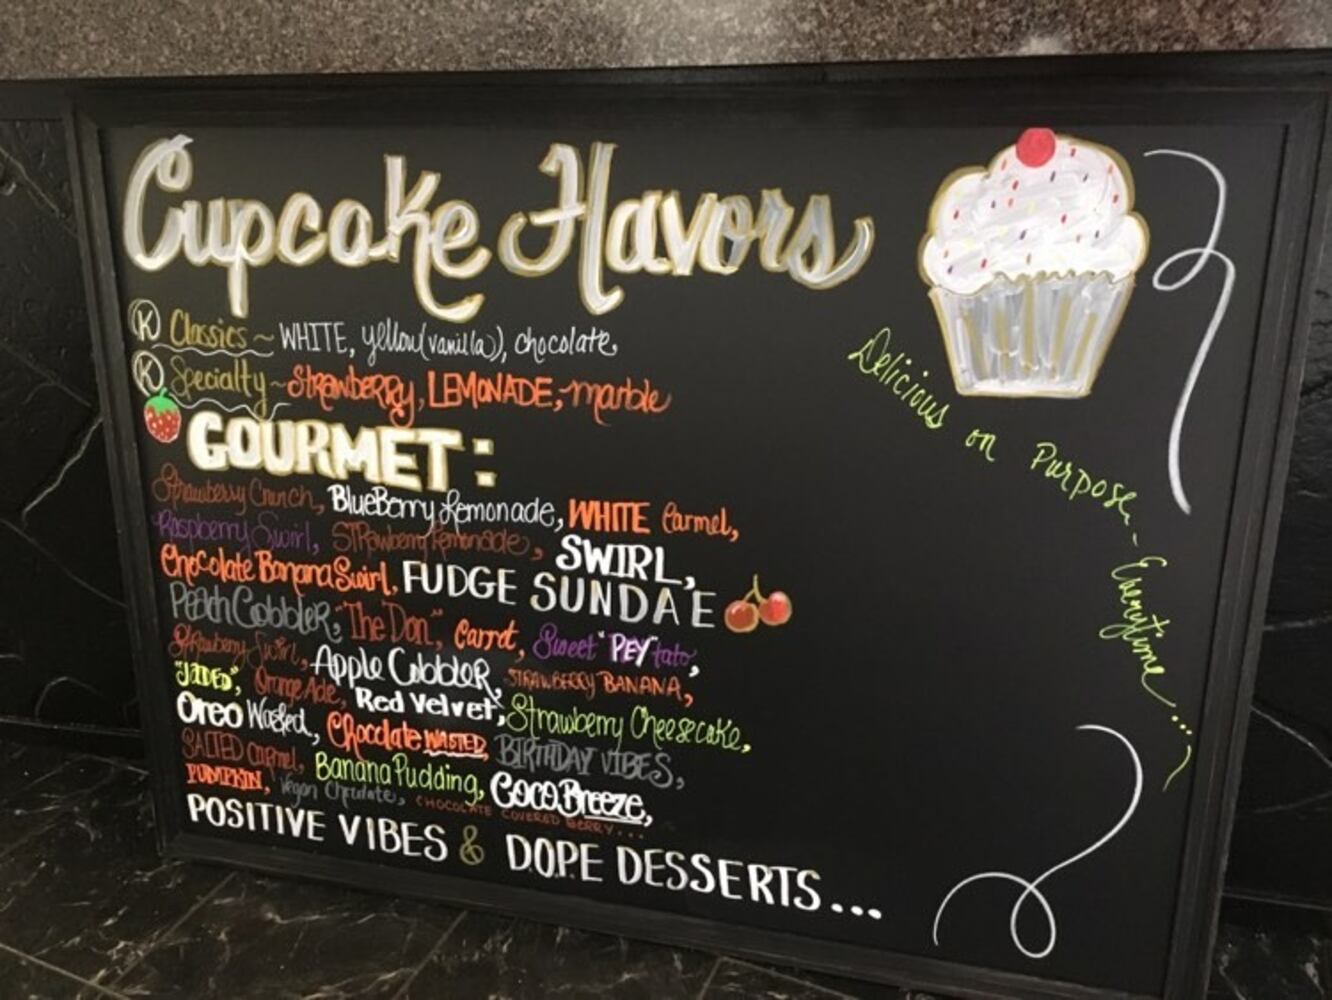 Cupcake Flavors
K Classics ~ WHITE, yellow(vanilla), chocolate,
K Specialty ~ Strawberry, LEMONADE, marble
GOURMET:
Strawberry Crunch, BlueBerry Lemonade, WHITE Carmel,
Raspberry Swirl, STRawberry Lemonade, SWIRL,
Chocolate Banana Swirl, FUDGE SUNDAE
Peach Cobbler, "The Don", Carrot, Sweet "PEY" tato,
Strawberry Swirl, Apple Cobbler, STRAWBERRY BANANA,
"JADED", Orange Ade, Red Velvet, Strawberry Cheesecake,
Oreo Wasted, Chocolate WASTED, BIRTHDAY VIBES,
SALTED Carmel, Banana Pudding, CocoBreeze,
PUMPKIN, Vegan Chocolate, CHOCOLATE COVERED BERRY...
POSITIVE VIBES & D.O.P.E DESSERTS...
Delicious on Purpose ~ Everytime...